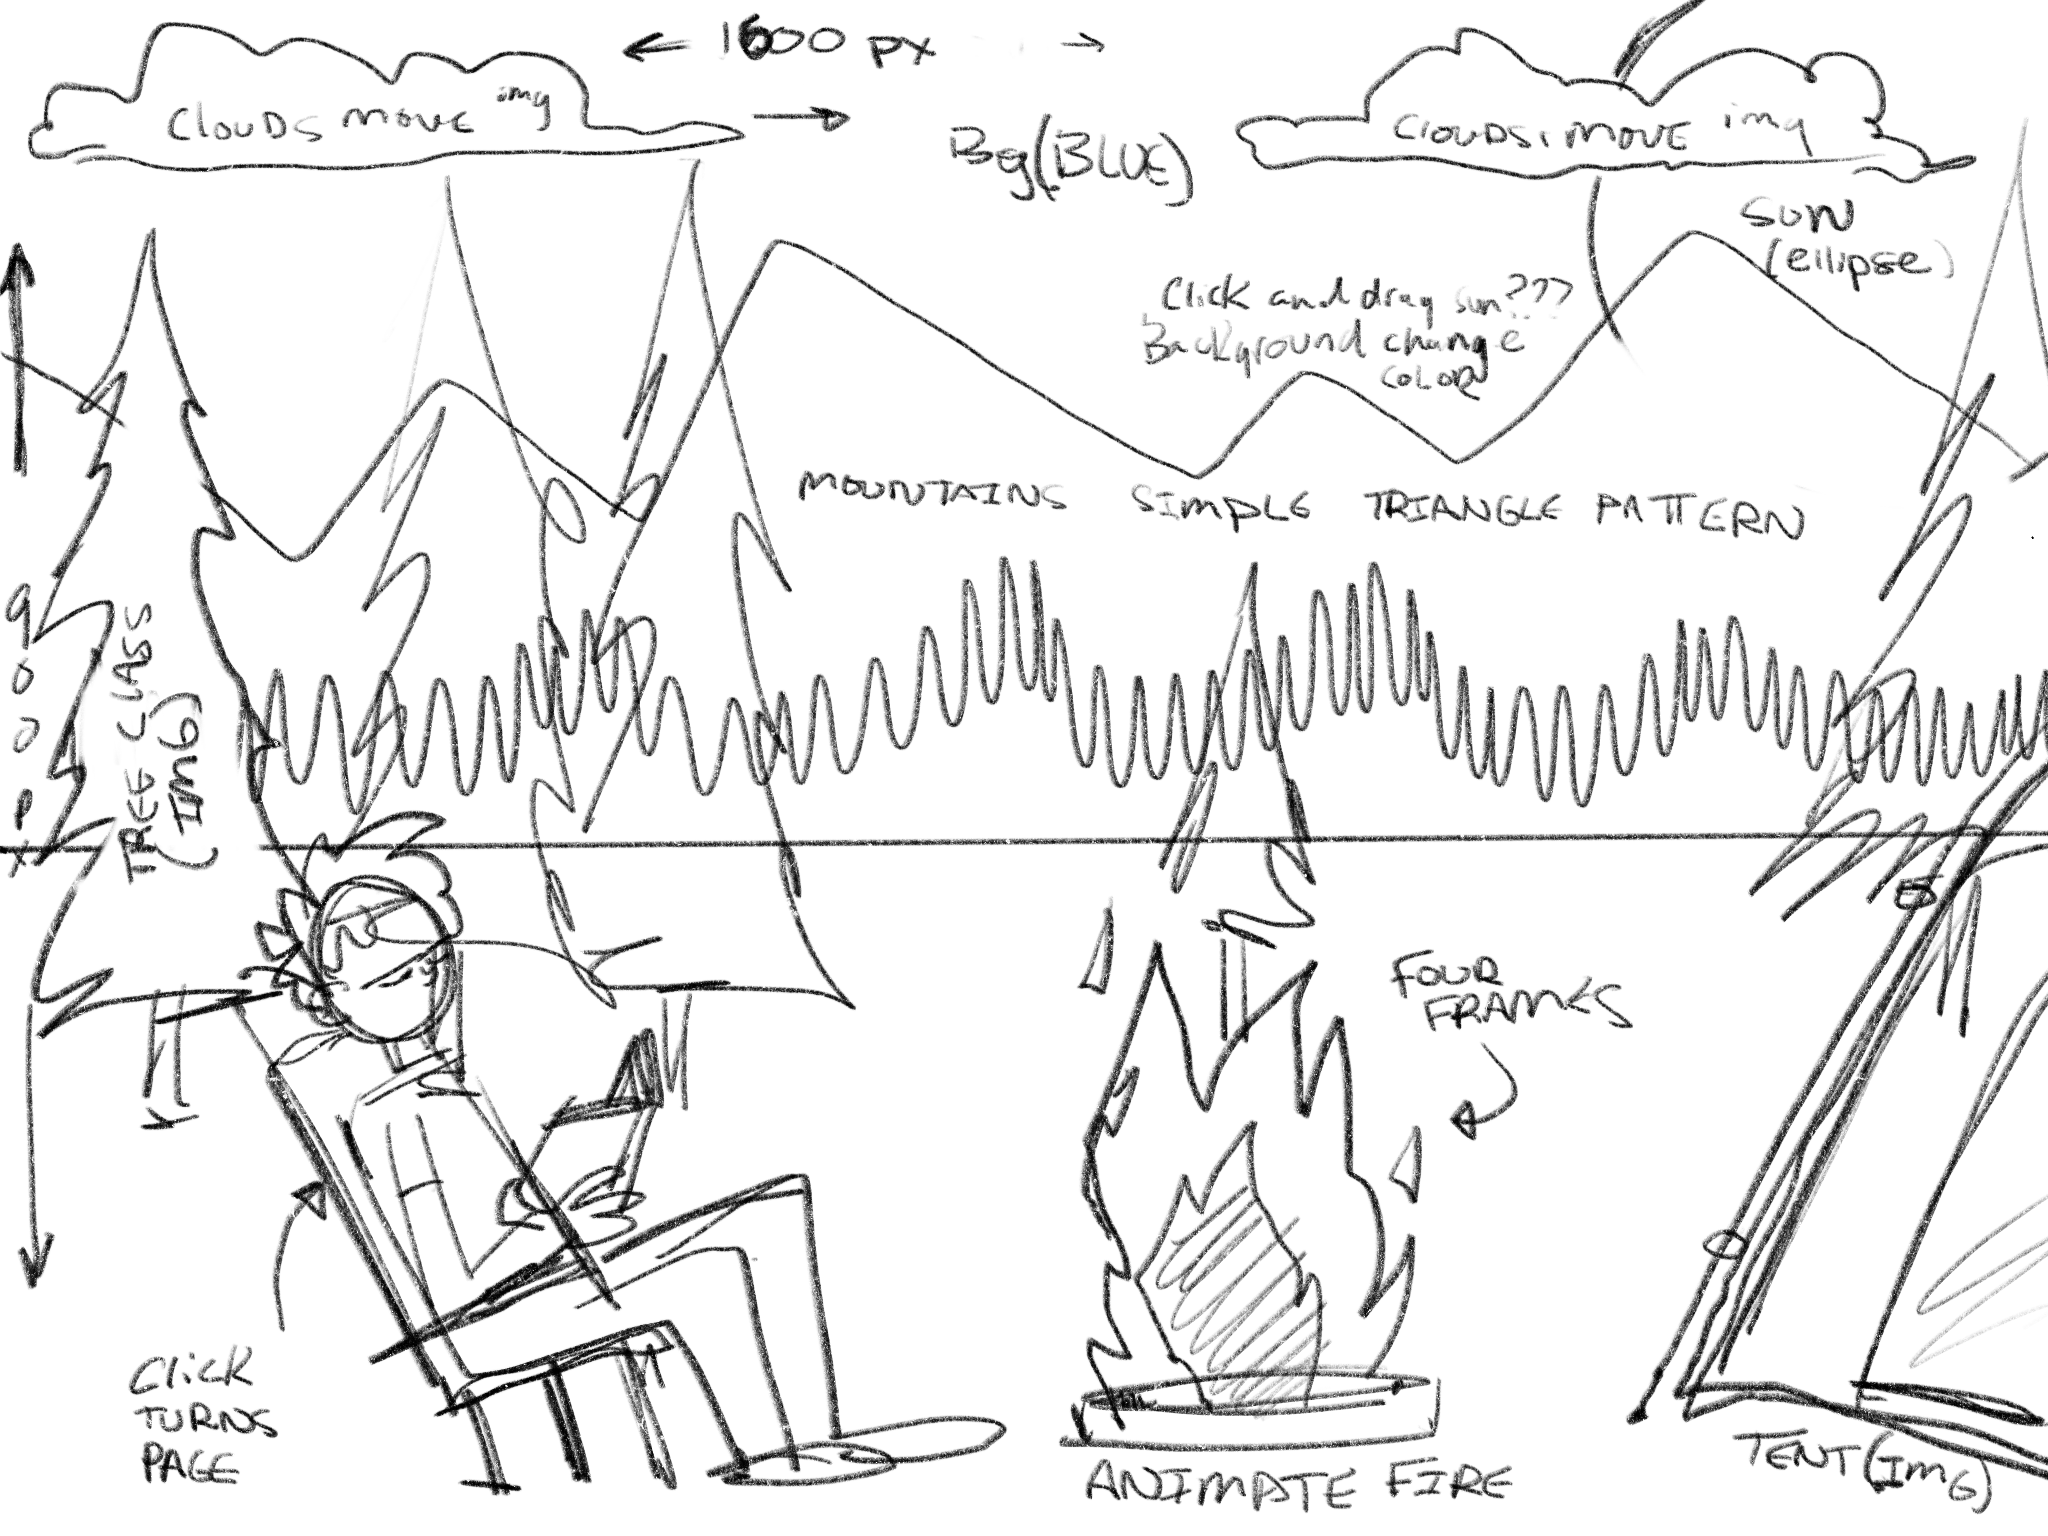 ← 1600 PX →
CLOUDS MOVE img
CLOUDS, MOVE img
Bg(BLUE)
SUN
(ellipse)
Click and drag sun???
Background change
COLOR
MOUNTAINS SIMPLE TRIANGLE PATTERN
900 PX
TREE CLASS
(IMG)
FOUR
FRAMES
Click
TURNS
PAGE
ANIMATE FIRE
TENT (IMG)